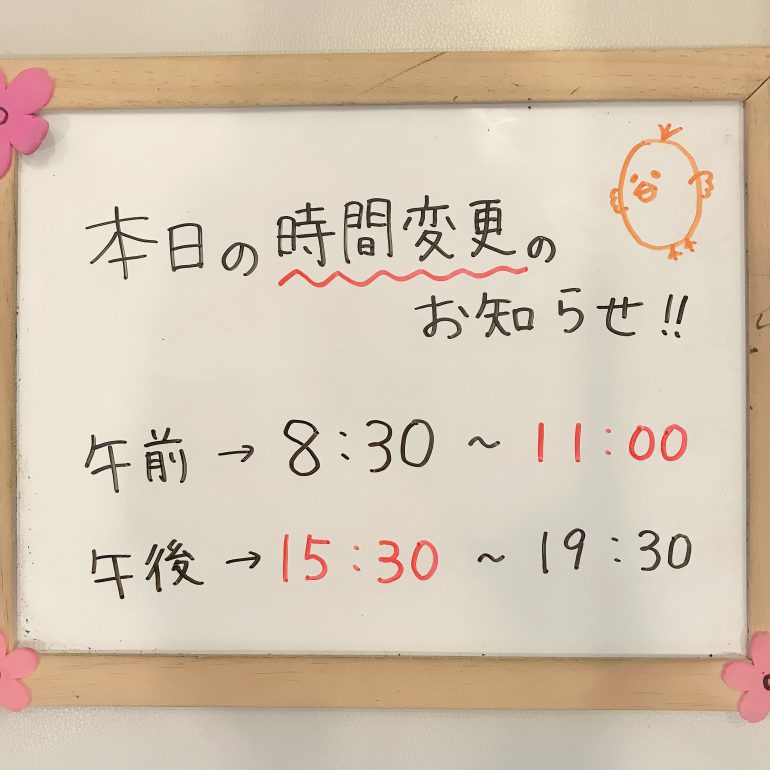 本日の時間変更の
お知らせ!!
午前→8:30~11:00
午後→15:30~19:30